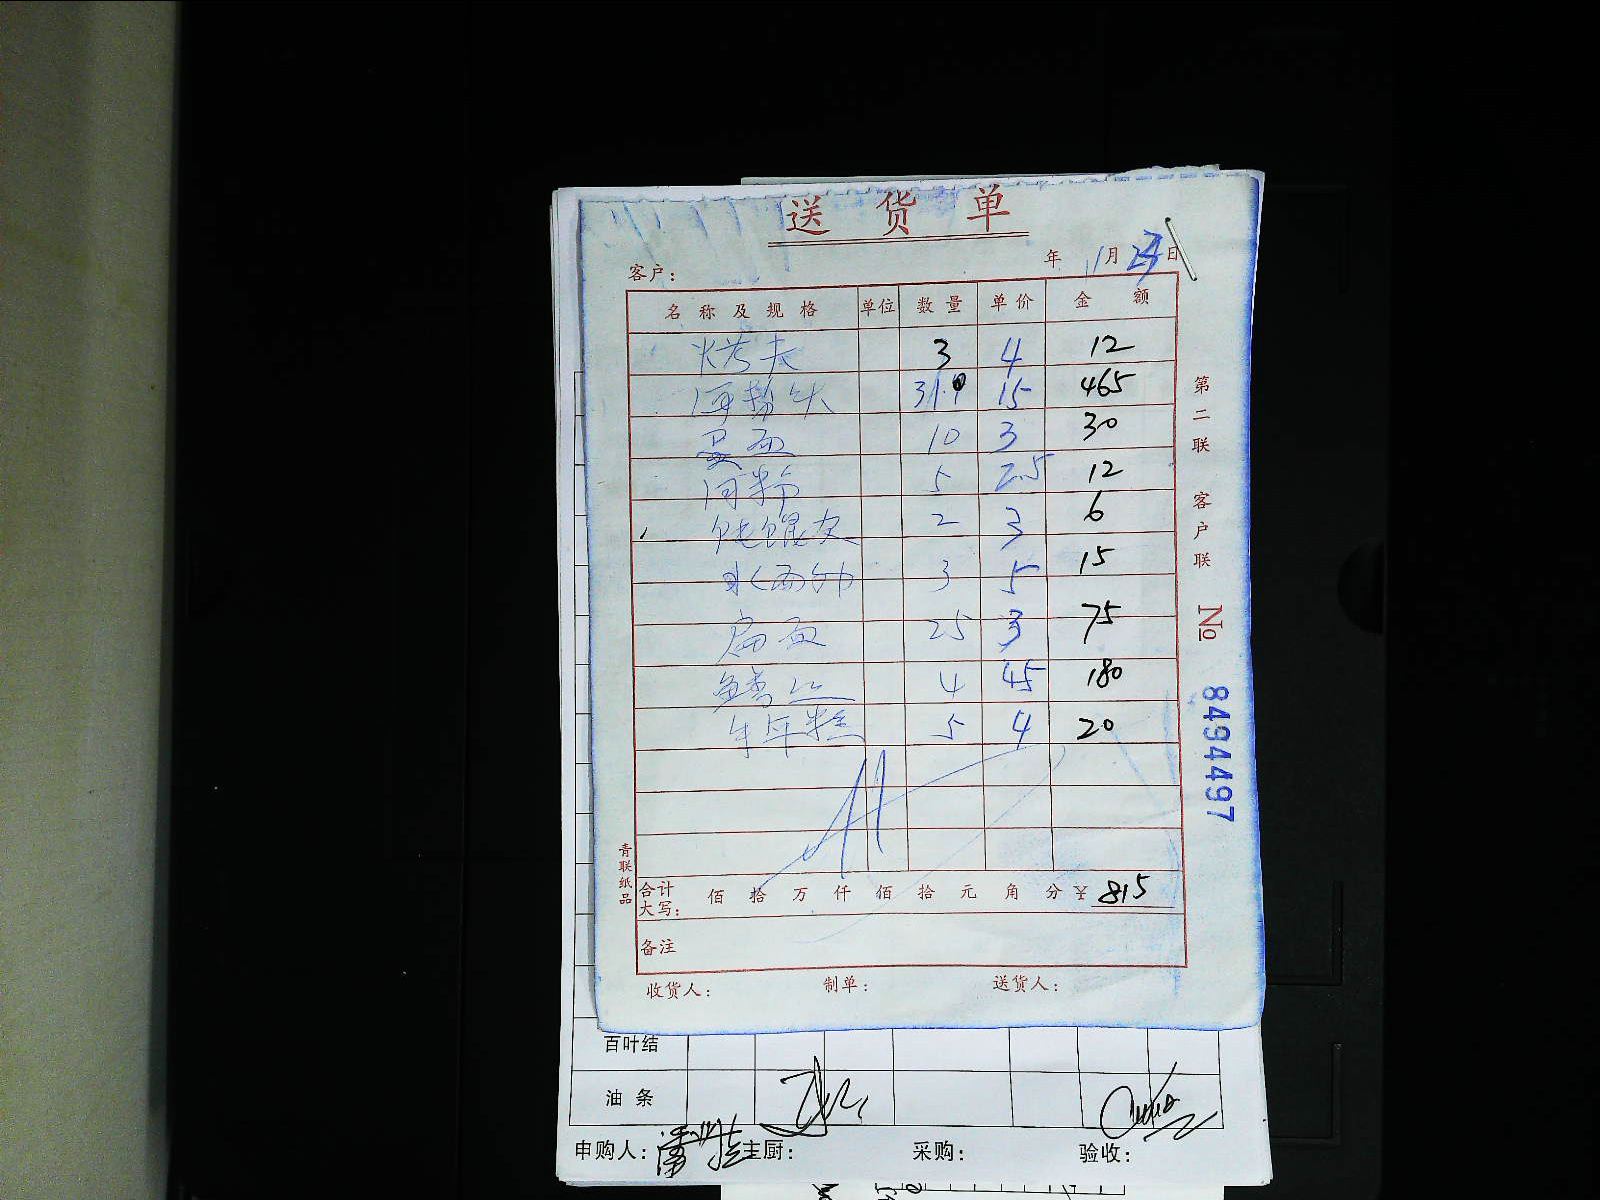 送货单
年 11月 27日
客户：
名称及规格 单位 数量 单价 金额
烤夫 3 4 12
31.9 15 465
面 10 3 30
河粉 5 2.5 12
馄皮 2 3 6
水面 3 5 15
扁面 25 3 75
鳝丝 4 45 180
年糕 5 4 20
合计大写： 佰 拾 万 仟 佰 拾 元 角 分 ¥ 815
备注
收货人： 制单： 送货人：
第二联 客户联 No 8494497
青联纸品
百叶结
油条
申购人： 主厨： 采购： 验收：